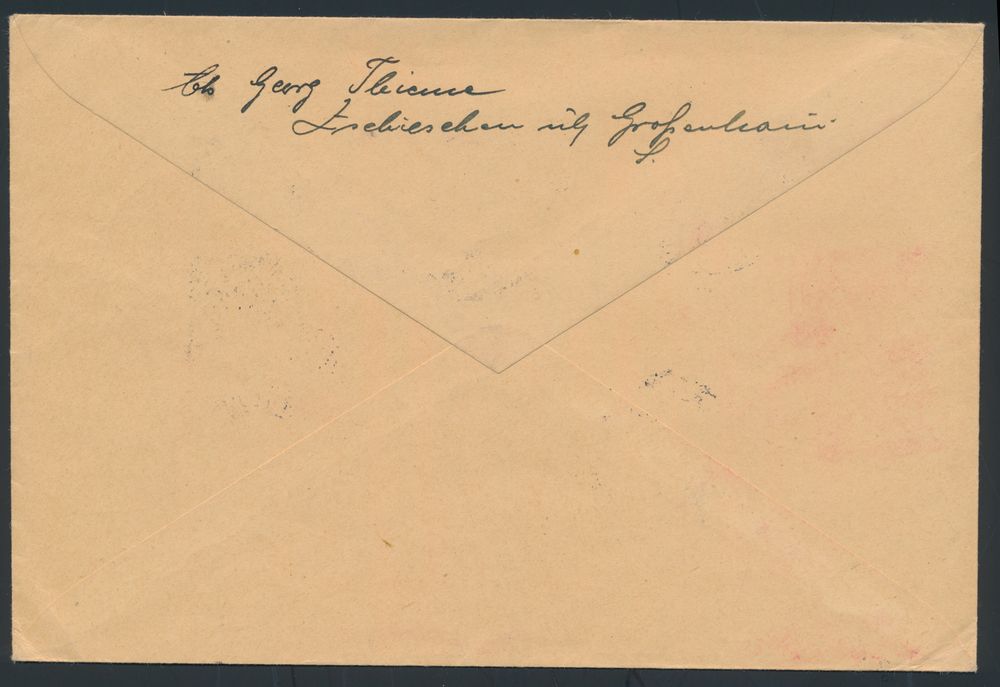 Abs Georg Thieme
Zschieschen üb Großenhain
S.